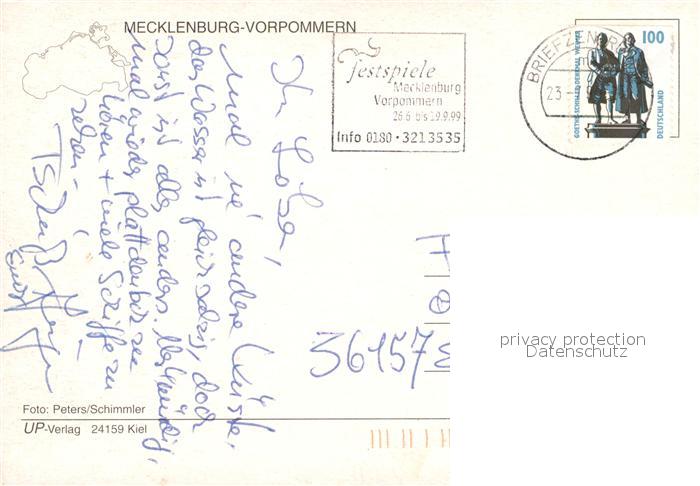 MECKLENBURG-VORPOMMERN
Festspiele
Mecklenburg
Vorpommern
26.6. bis 19.9.99
Info 0180 · 3213535
BRIEFZEN
23
100
GOETHE-SCHILLER-DENKMAL WEIMAR
DEUTSCHLAND
Ihr
mal ne andere Küste,
das Wasser ist gleich salzig, doch
sonst ist alles anders. Merkwürdig,
mal wieder plattdeutsch zu
hören + viele Schiffe zu
sehen -
Tschüß
36157
privacy protection
Datenschutz
Foto: Peters/Schimmler
UP-Verlag 24159 Kiel